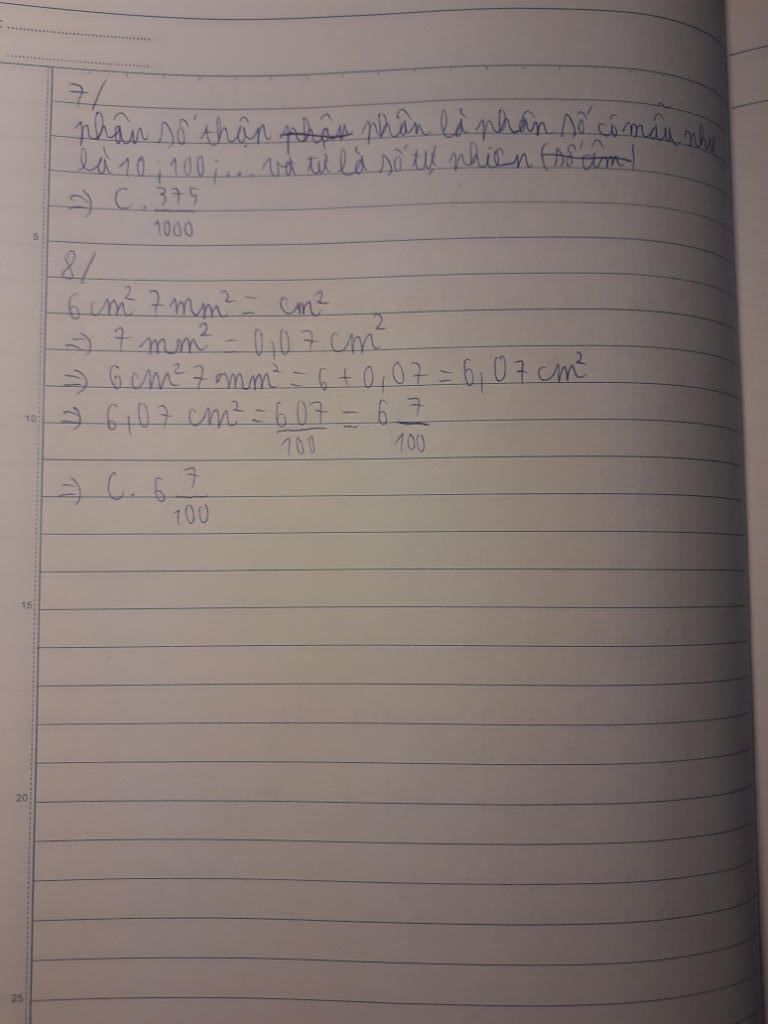 7/
phân số thận phân phân là phân số có mẫu như
là 10; 100; ... và tử là số tự nhiên (số âm)
=> C. 375/1000
5
8/
6 cm² 7 mm² = cm²
=> 7 mm² = 0,07 cm²
=> 6 cm² 7 mm² = 6 + 0,07 = 6,07 cm²
=> 6,07 cm² = 607/100 = 6 7/100
10
=> C. 6 7/100
15
20
25